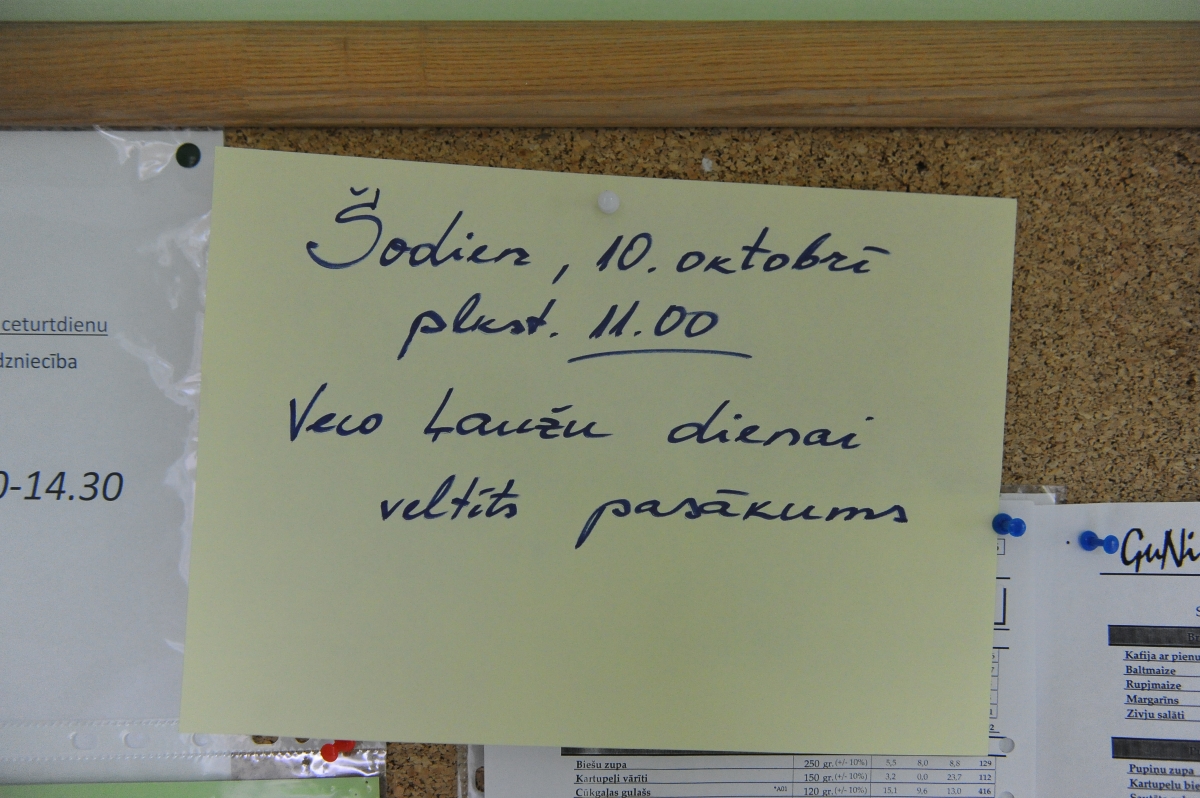 Šodien, 10. oktobrī
plkst. 11.00
Veco Ļaužu dienai
veltīts pasākums
ceturtdienu
dzniecība
0-14.30
GuNi
Kafija ar pienu
Baltmaize
Rupjmaize
Margarīns
Zivju salāti
Pupiņu zupa
Biešu zupa 250 gr.(+/- 10%) 5,5 8,0 8,8 129
Kartupeļi vārīti 150 gr.(+/- 10%) 3,2 0,0 23,7 112
Cūkgaļas gulašs *A01 120 gr.(+/- 10%) 15,1 9,6 13,0 416